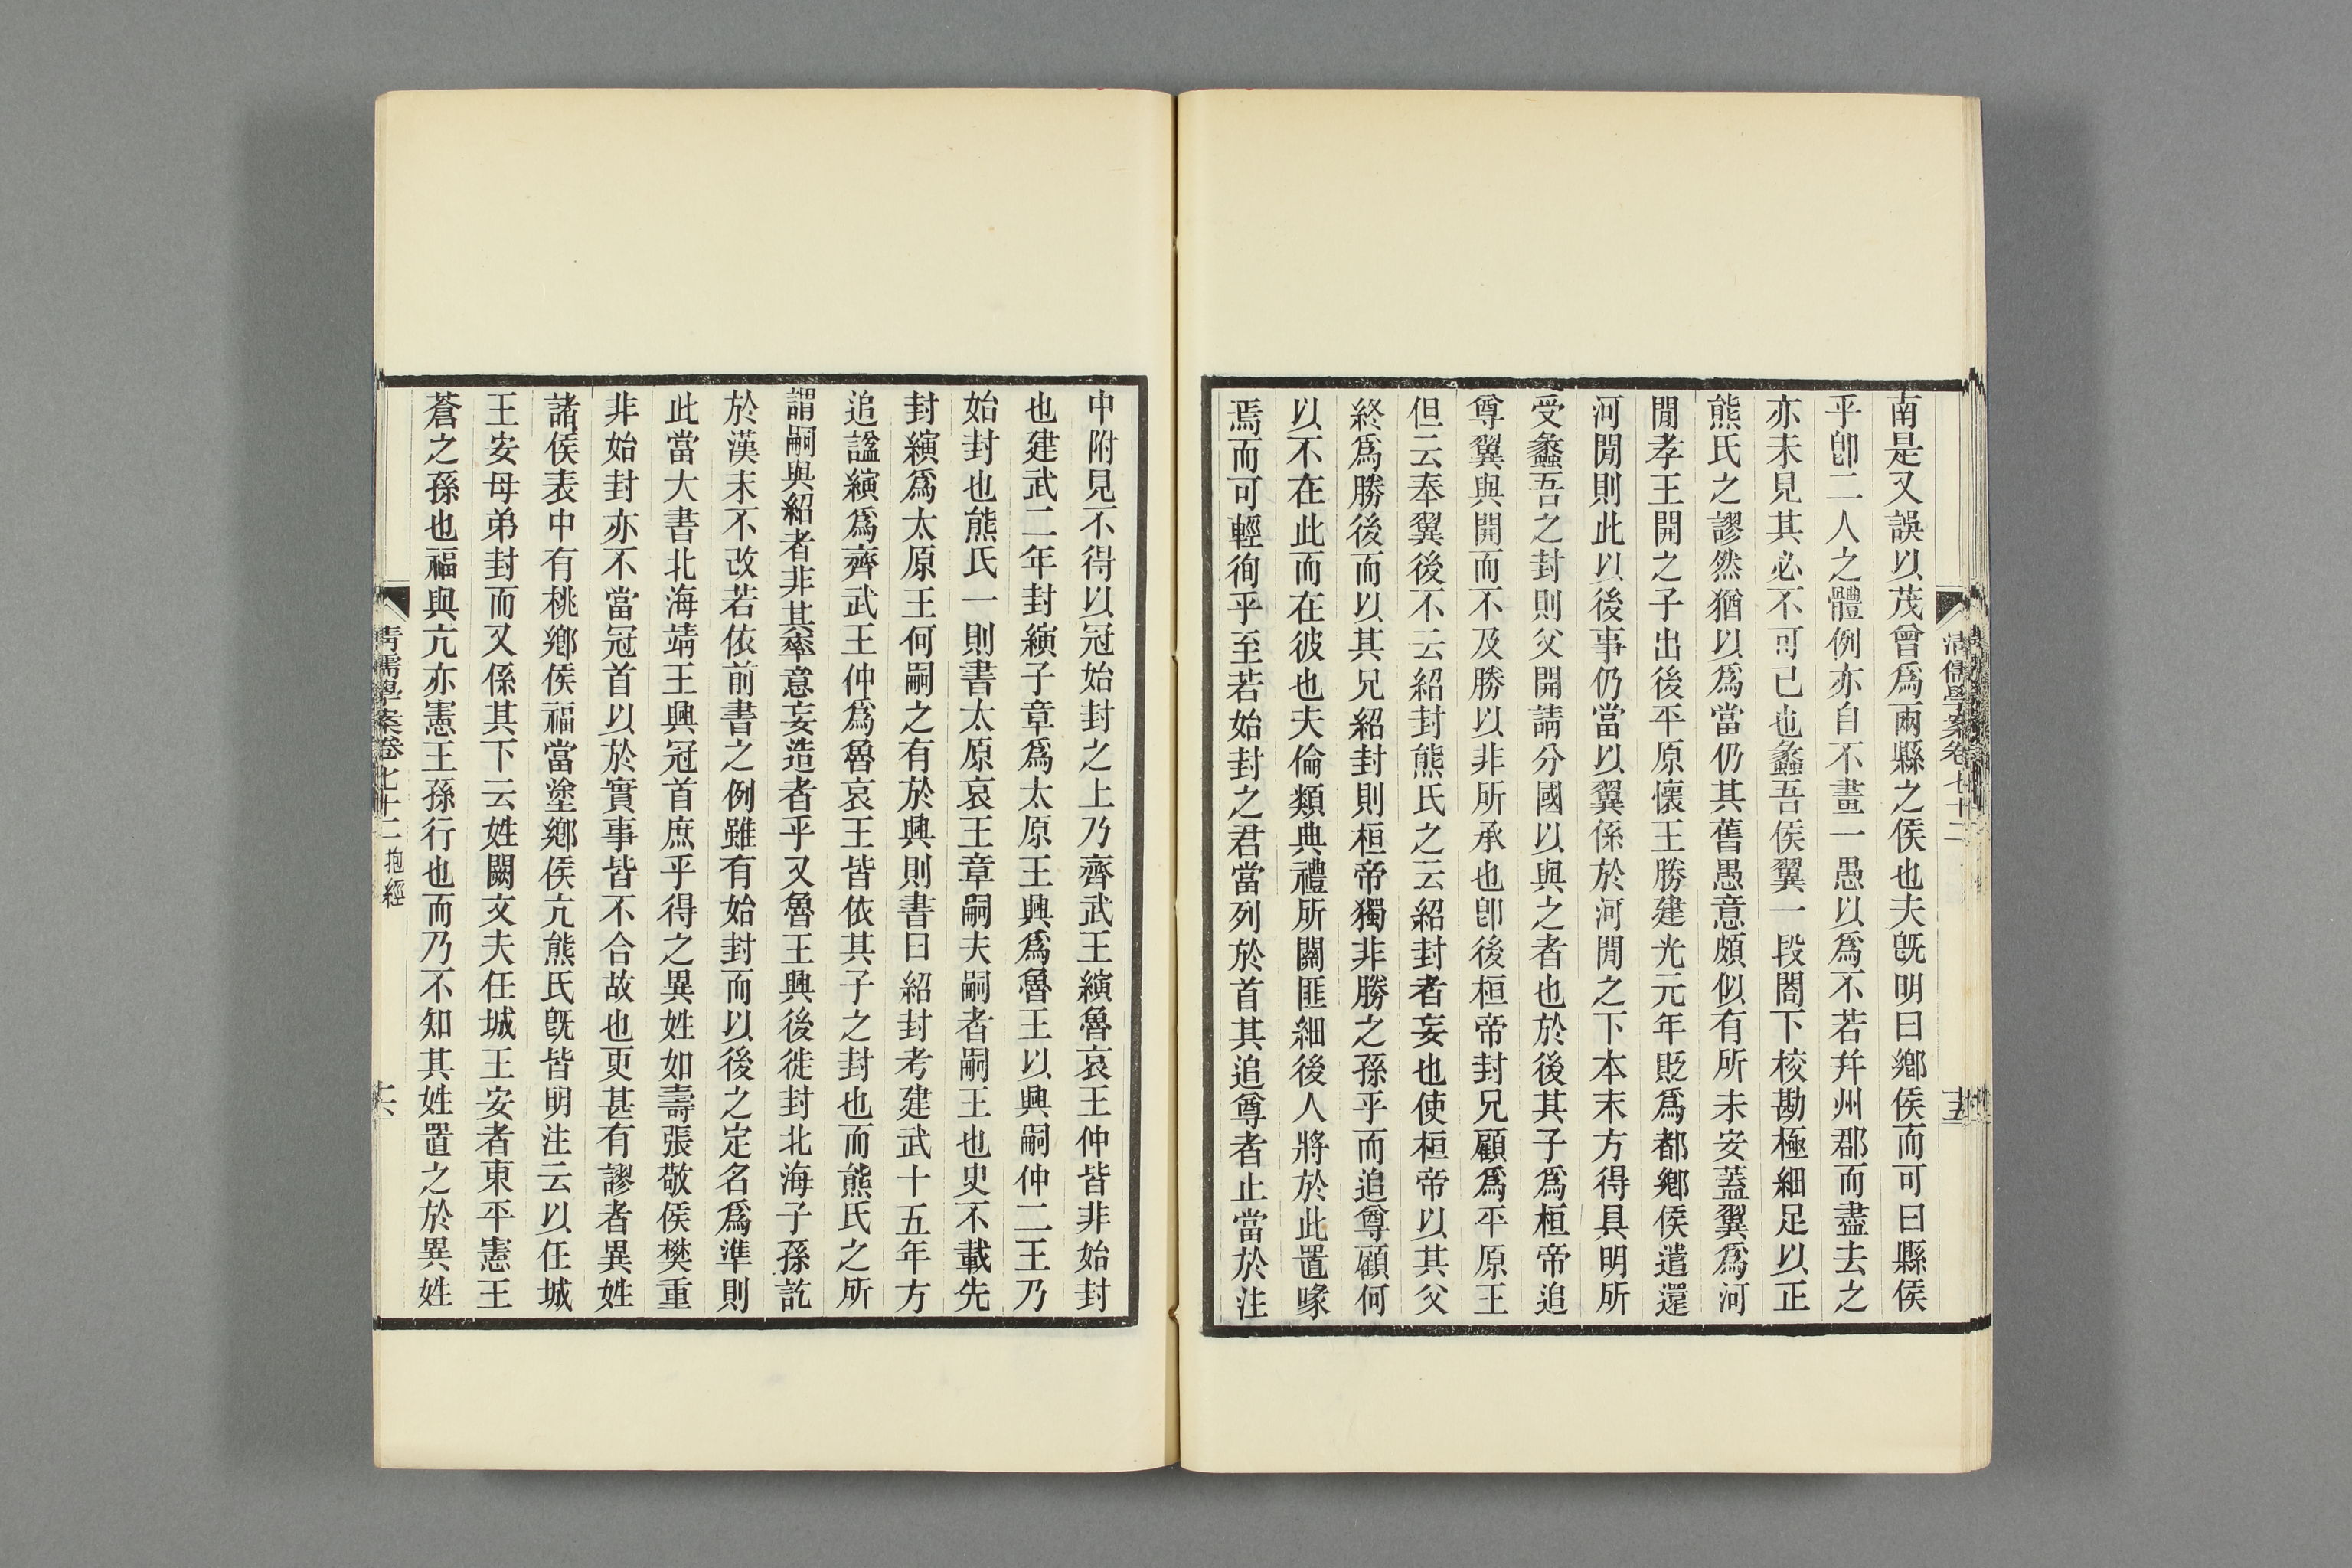 南是又誤以茂曾爲兩縣之侯也夫旣明曰鄉侯而可曰縣侯
乎卽二人之體例亦自不畫一愚以爲不若幷州郡而盡去之
亦未見其必不可已也蠡吾侯翼一段閤下校勘極細足以正
熊氏之謬然猶以爲當仍其舊愚意頗似有所未安蓋翼爲河
閒孝王開之子出後平原懷王勝建光元年貶爲都鄉侯遣還
河閒則此以後事仍當以翼係於河閒之下本末方得具明所
受蠡吾之封則父開請分國以與之者也於後其子爲桓帝追
尊翼與開而不及勝以非所承也卽後桓帝封兄顧爲平原王
但云奉翼後不云紹封熊氏之云紹封者妄也使桓帝以其父
終爲勝後而以其兄紹封則桓帝獨非勝之孫乎而追尊顧何
以不在此而在彼也夫倫類典禮所關匪細後人將於此置喙
焉而可輕徇乎至若始封之君當列於首其追尊者止當於注
清儒學案卷七十二
十五
中附見不得以冠始封之上乃齊武王縯魯哀王仲皆非始封
也建武二年封縯子章爲太原王興爲魯王以興嗣仲二王乃
始封也熊氏一則書太原哀王章嗣夫嗣者嗣王也史不載先
封縯爲太原王何嗣之有於興則書曰紹封考建武十五年方
追諡縯爲齊武王仲爲魯哀王皆依其子之封也而熊氏之所
謂嗣與紹者非其率意妄造者乎又魯王興後徙封北海子孫訖
於漢末不改若依前書之例雖有始封而以後之定名爲準則
此當大書北海靖王興冠首庶乎得之異姓如壽張敬侯樊重
非始封亦不當冠首以於實事皆不合故也更甚有謬者異姓
諸侯表中有桃鄉侯福當塗鄉侯亢熊氏旣皆明注云以任城
王安母弟封而又係其下云姓闕文夫任城王安者東平憲王
蒼之孫也福與亢亦憲王孫行也而乃不知其姓置之於異姓
清儒學案卷七十二 抱經
十六